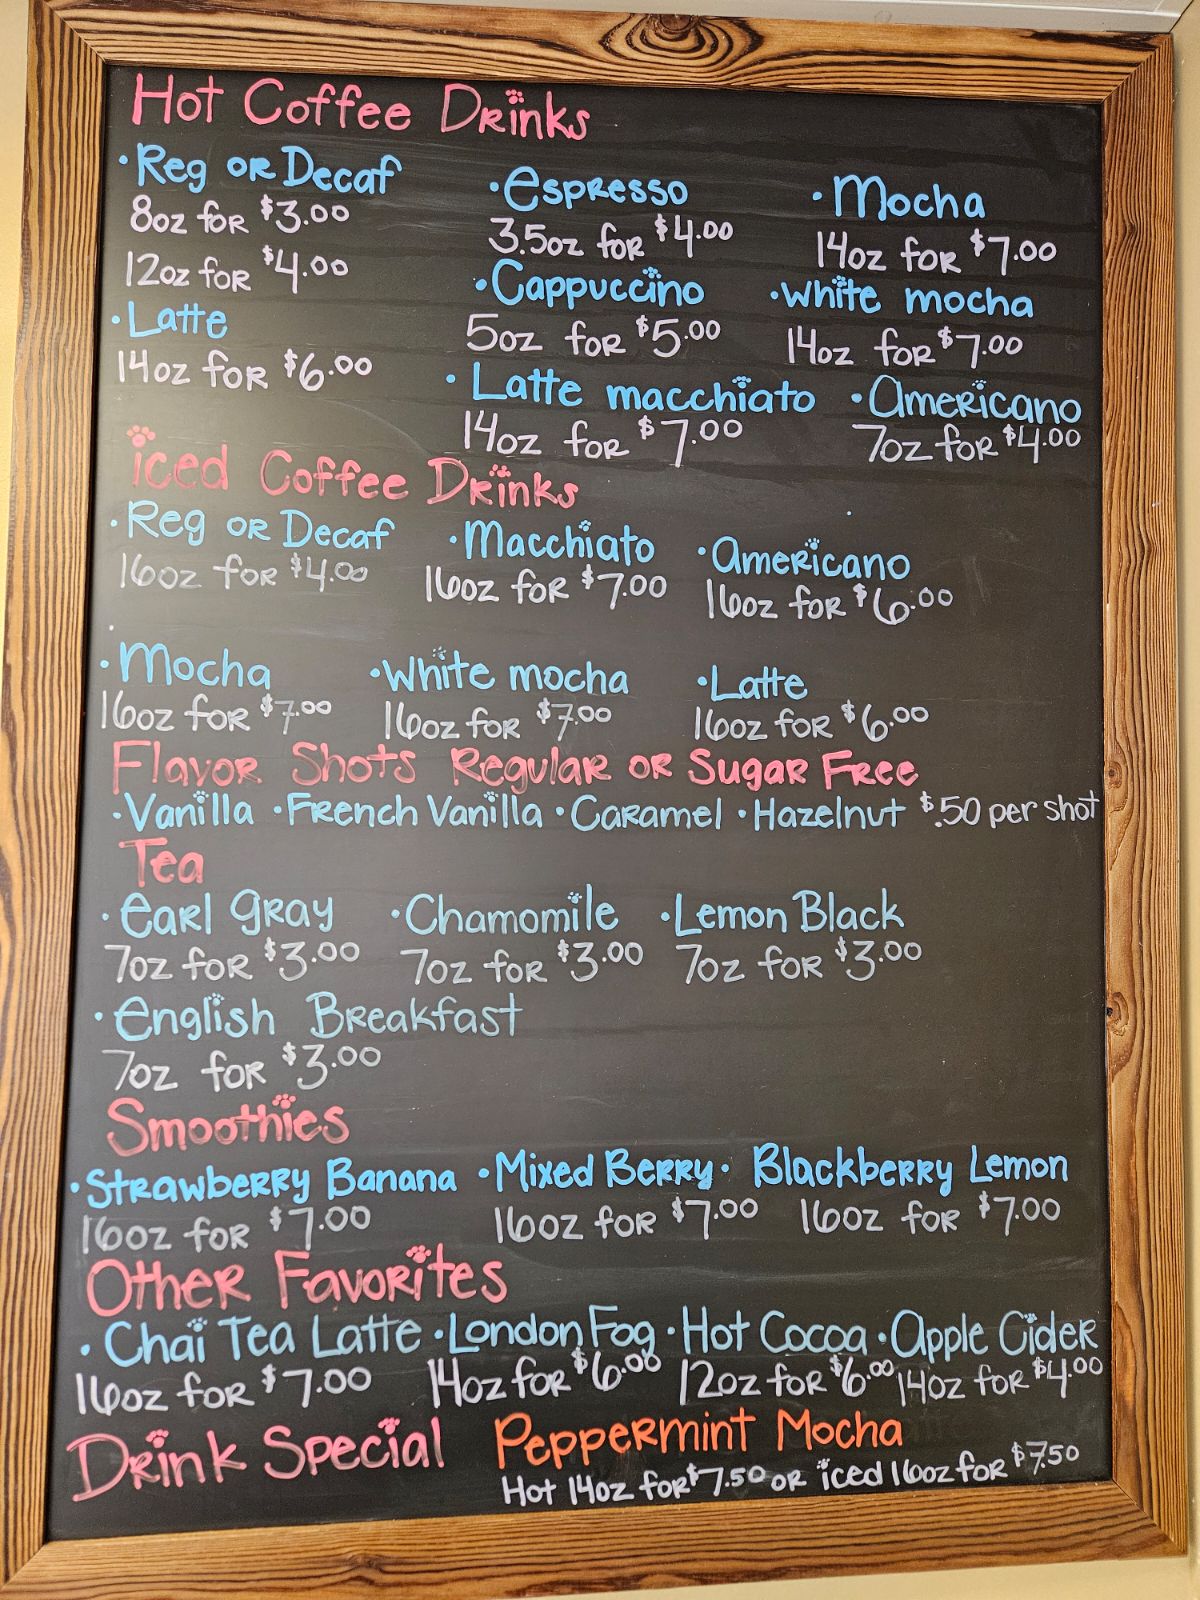 Hot Coffee Drinks
• Reg or Decaf
8oz for $3.00
12oz for $4.00
• Espresso
3.5oz for $4.00
• Mocha
14oz for $7.00
• Cappuccino
5oz for $5.00
• White mocha
14oz for $7.00
• Latte
14oz for $6.00
• Latte macchiato
14oz for $7.00
• Americano
7oz for $4.00
iced Coffee Drinks
• Reg or Decaf
16oz for $4.00
• Macchiato
16oz for $7.00
• Americano
16oz for $6.00
• Mocha
16oz for $7.00
• White mocha
16oz for $7.00
• Latte
16oz for $6.00
Flavor Shots Regular or Sugar Free
• Vanilla • French Vanilla • Caramel • Hazelnut $.50 per shot
Tea
• Earl Gray
7oz for $3.00
• Chamomile
7oz for $3.00
• Lemon Black
7oz for $3.00
• English Breakfast
7oz for $3.00
Smoothies
• Strawberry Banana
16oz for $7.00
• Mixed Berry
16oz for $7.00
• Blackberry Lemon
16oz for $7.00
Other Favorites
• Chai Tea Latte
16oz for $7.00
• London Fog
14oz for $6.00
• Hot Cocoa
12oz for $6.00
• Apple Cider
14oz for $4.00
Drink Special
Peppermint Mocha
Hot 14oz for $7.50 or iced 16oz for $7.50